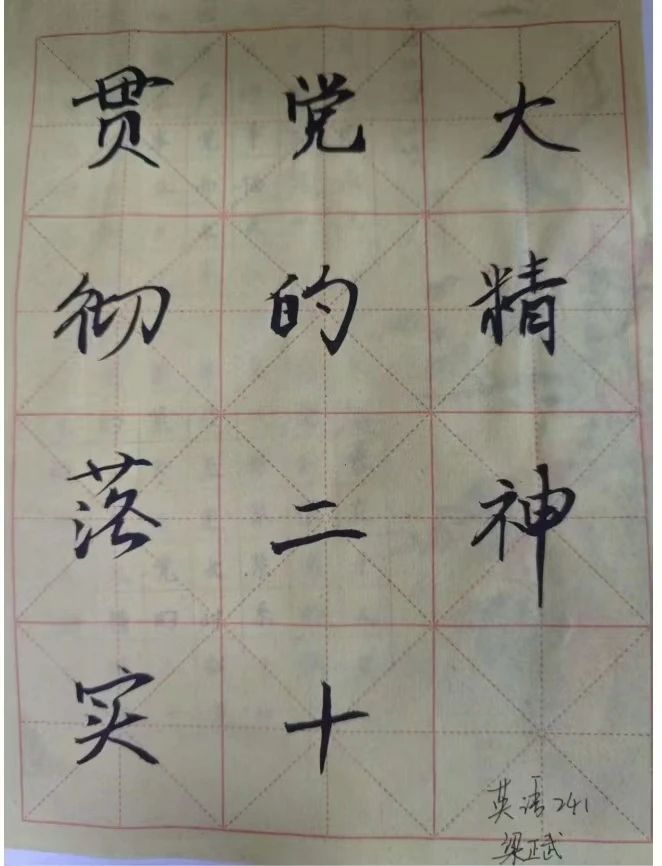 贯彻落实
党的二十
大精神
英语241
梁正武